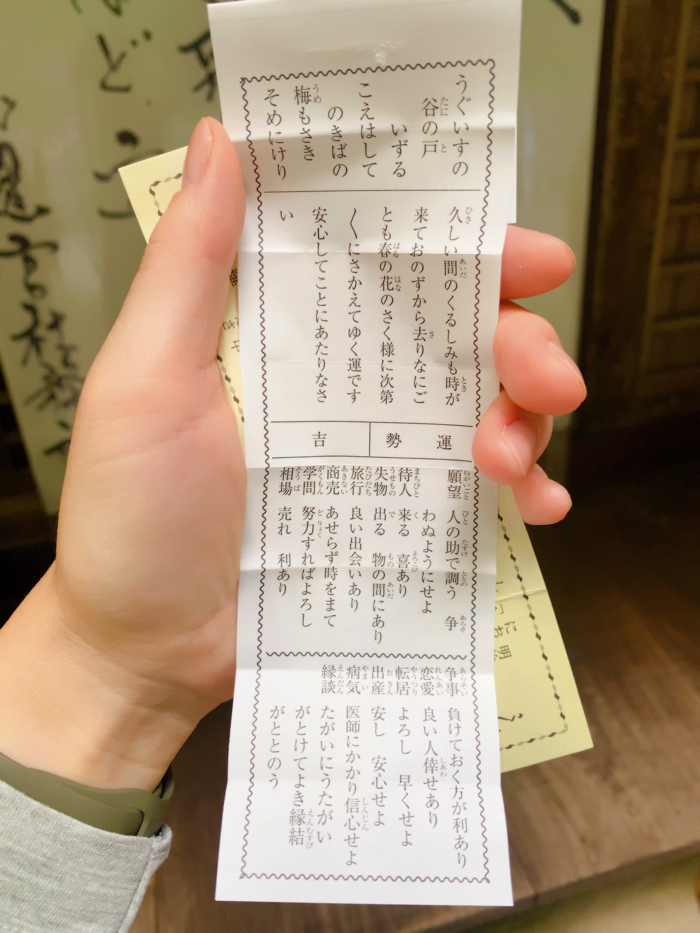 うぐいすの
谷の戸
いずる
こえはして
のきばの
梅もさき
そめにけり
久しい間のくるしみも時が
来ておのずから去りなにご
とも春の花のさく様に次第
〱にさかえてゆく運です
安心してことにあたりなさ
い
運勢
吉
願望 人の助で調う 争
わぬようにせよ
待人 来る 喜あり
失物 出る 物の間にあり
旅行 良い出会いあり
商売 あせらず時をまて
学問 努力すればよろし
相場 売れ 利あり
争事 負けておく方が利あり
恋愛 良い人倖せあり
転居 よろし 早くせよ
出産 安し 安心せよ
病気 医師にかかり信心せよ
縁談 たがいにうたがい
がとけてよき縁結
がととのう